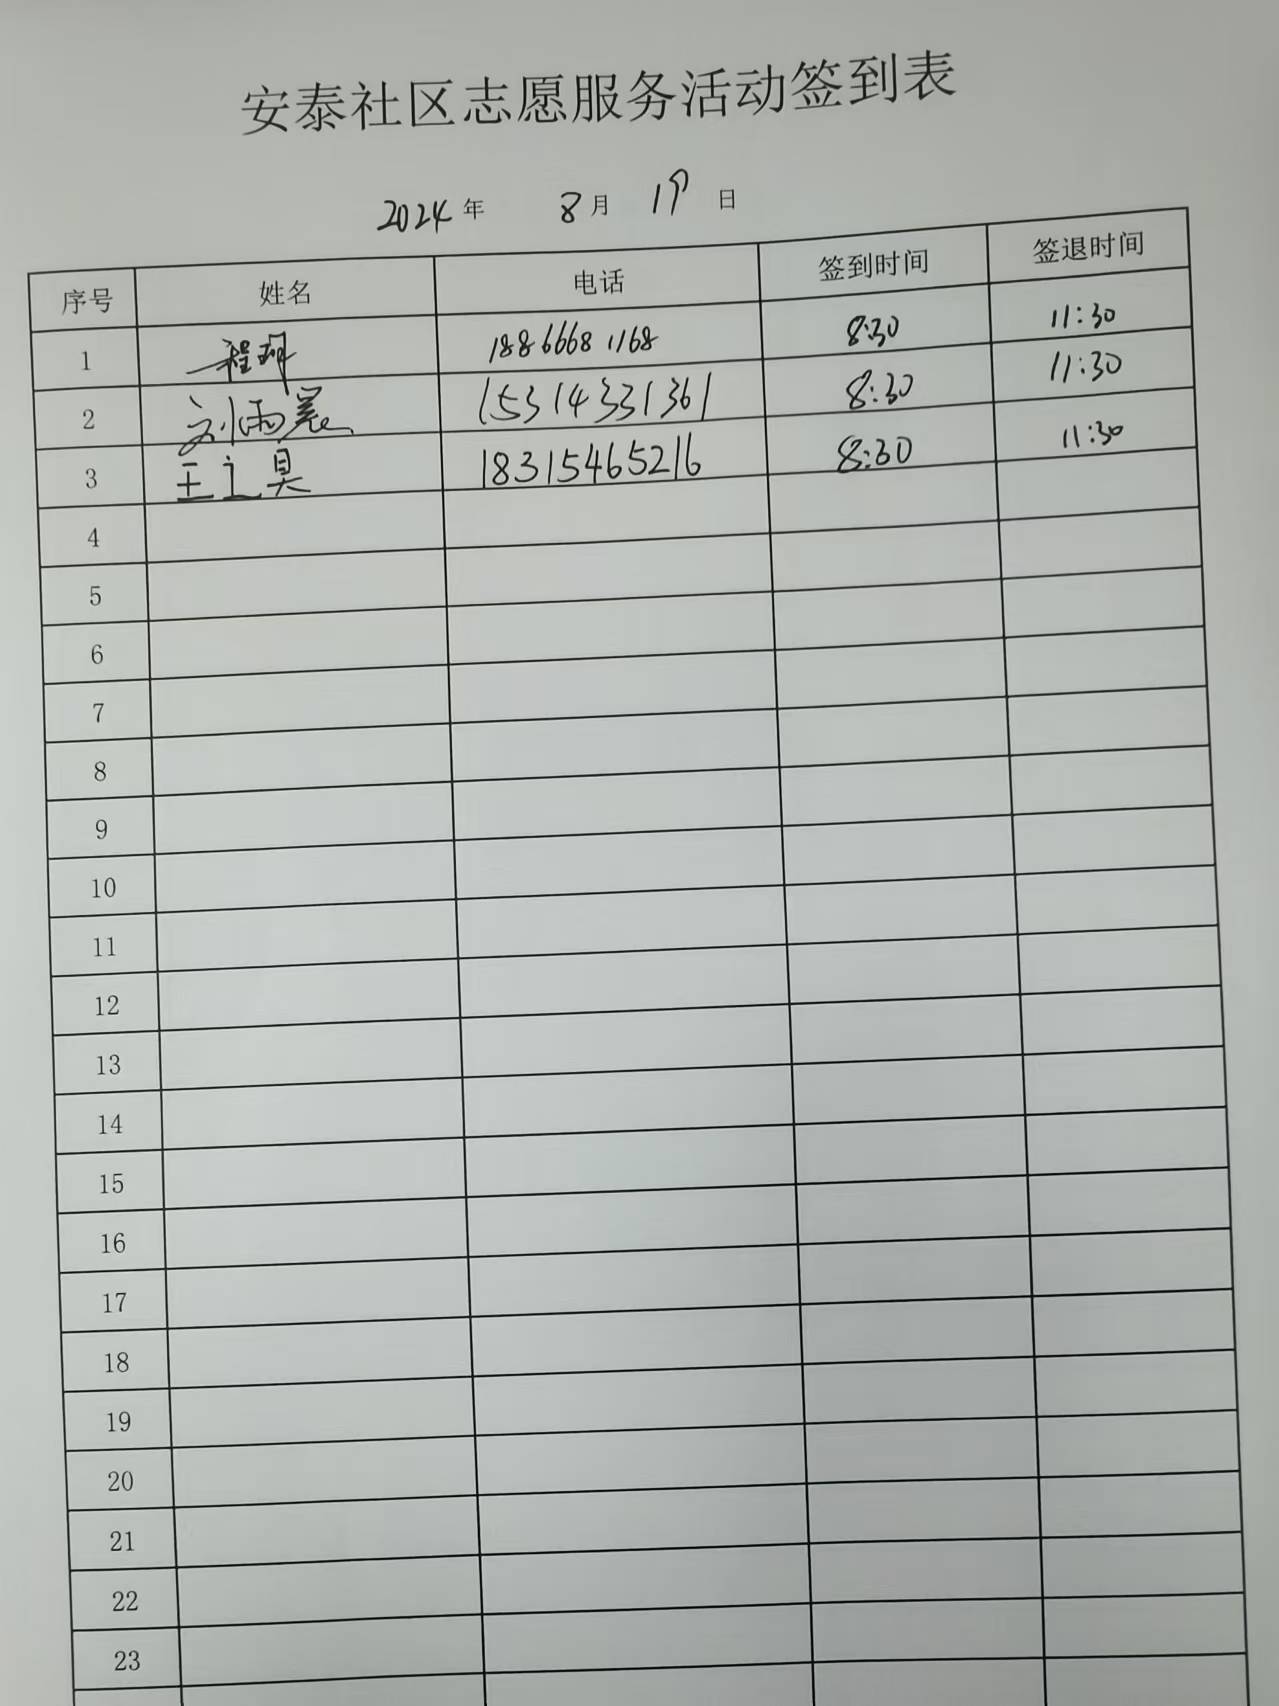 安泰社区志愿服务活动签到表
2024年 8月 19日
序号 姓名 电话 签到时间 签退时间
1 程珂 18866681168 8:30 11:30
2 刘雨晨 15314331361 8:30 11:30
3 王立昊 18315465216 8:30 11:30
4
5
6
7
8
9
10
11
12
13
14
15
16
17
18
19
20
21
22
23